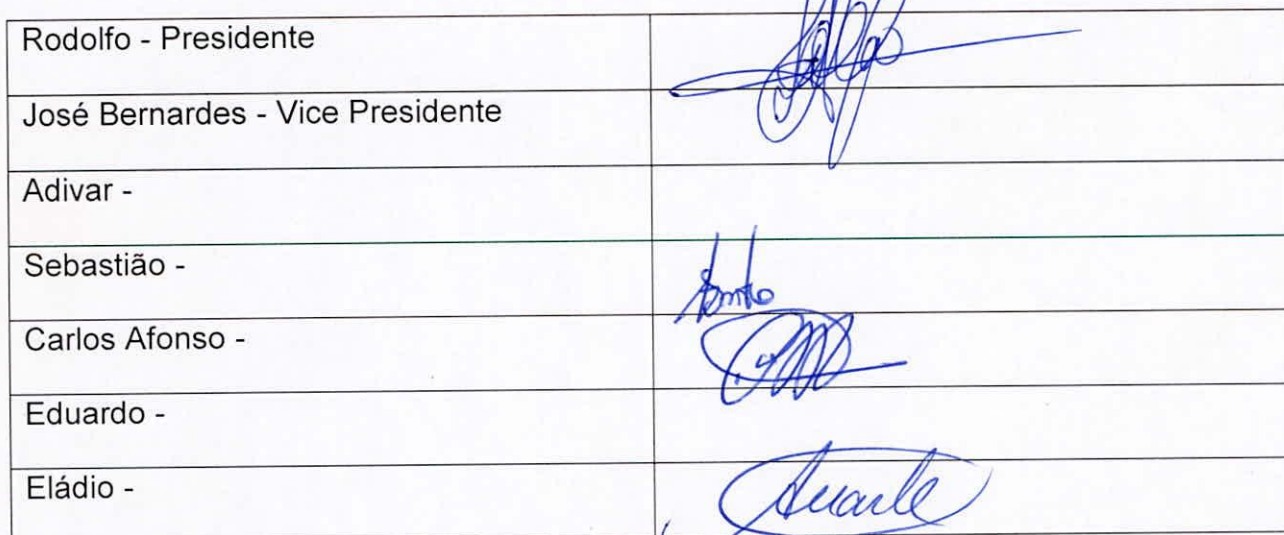 Rodolfo - Presidente
José Bernardes - Vice Presidente
Adivar -
Sebastião -
Carlos Afonso -
Eduardo -
Eládio -